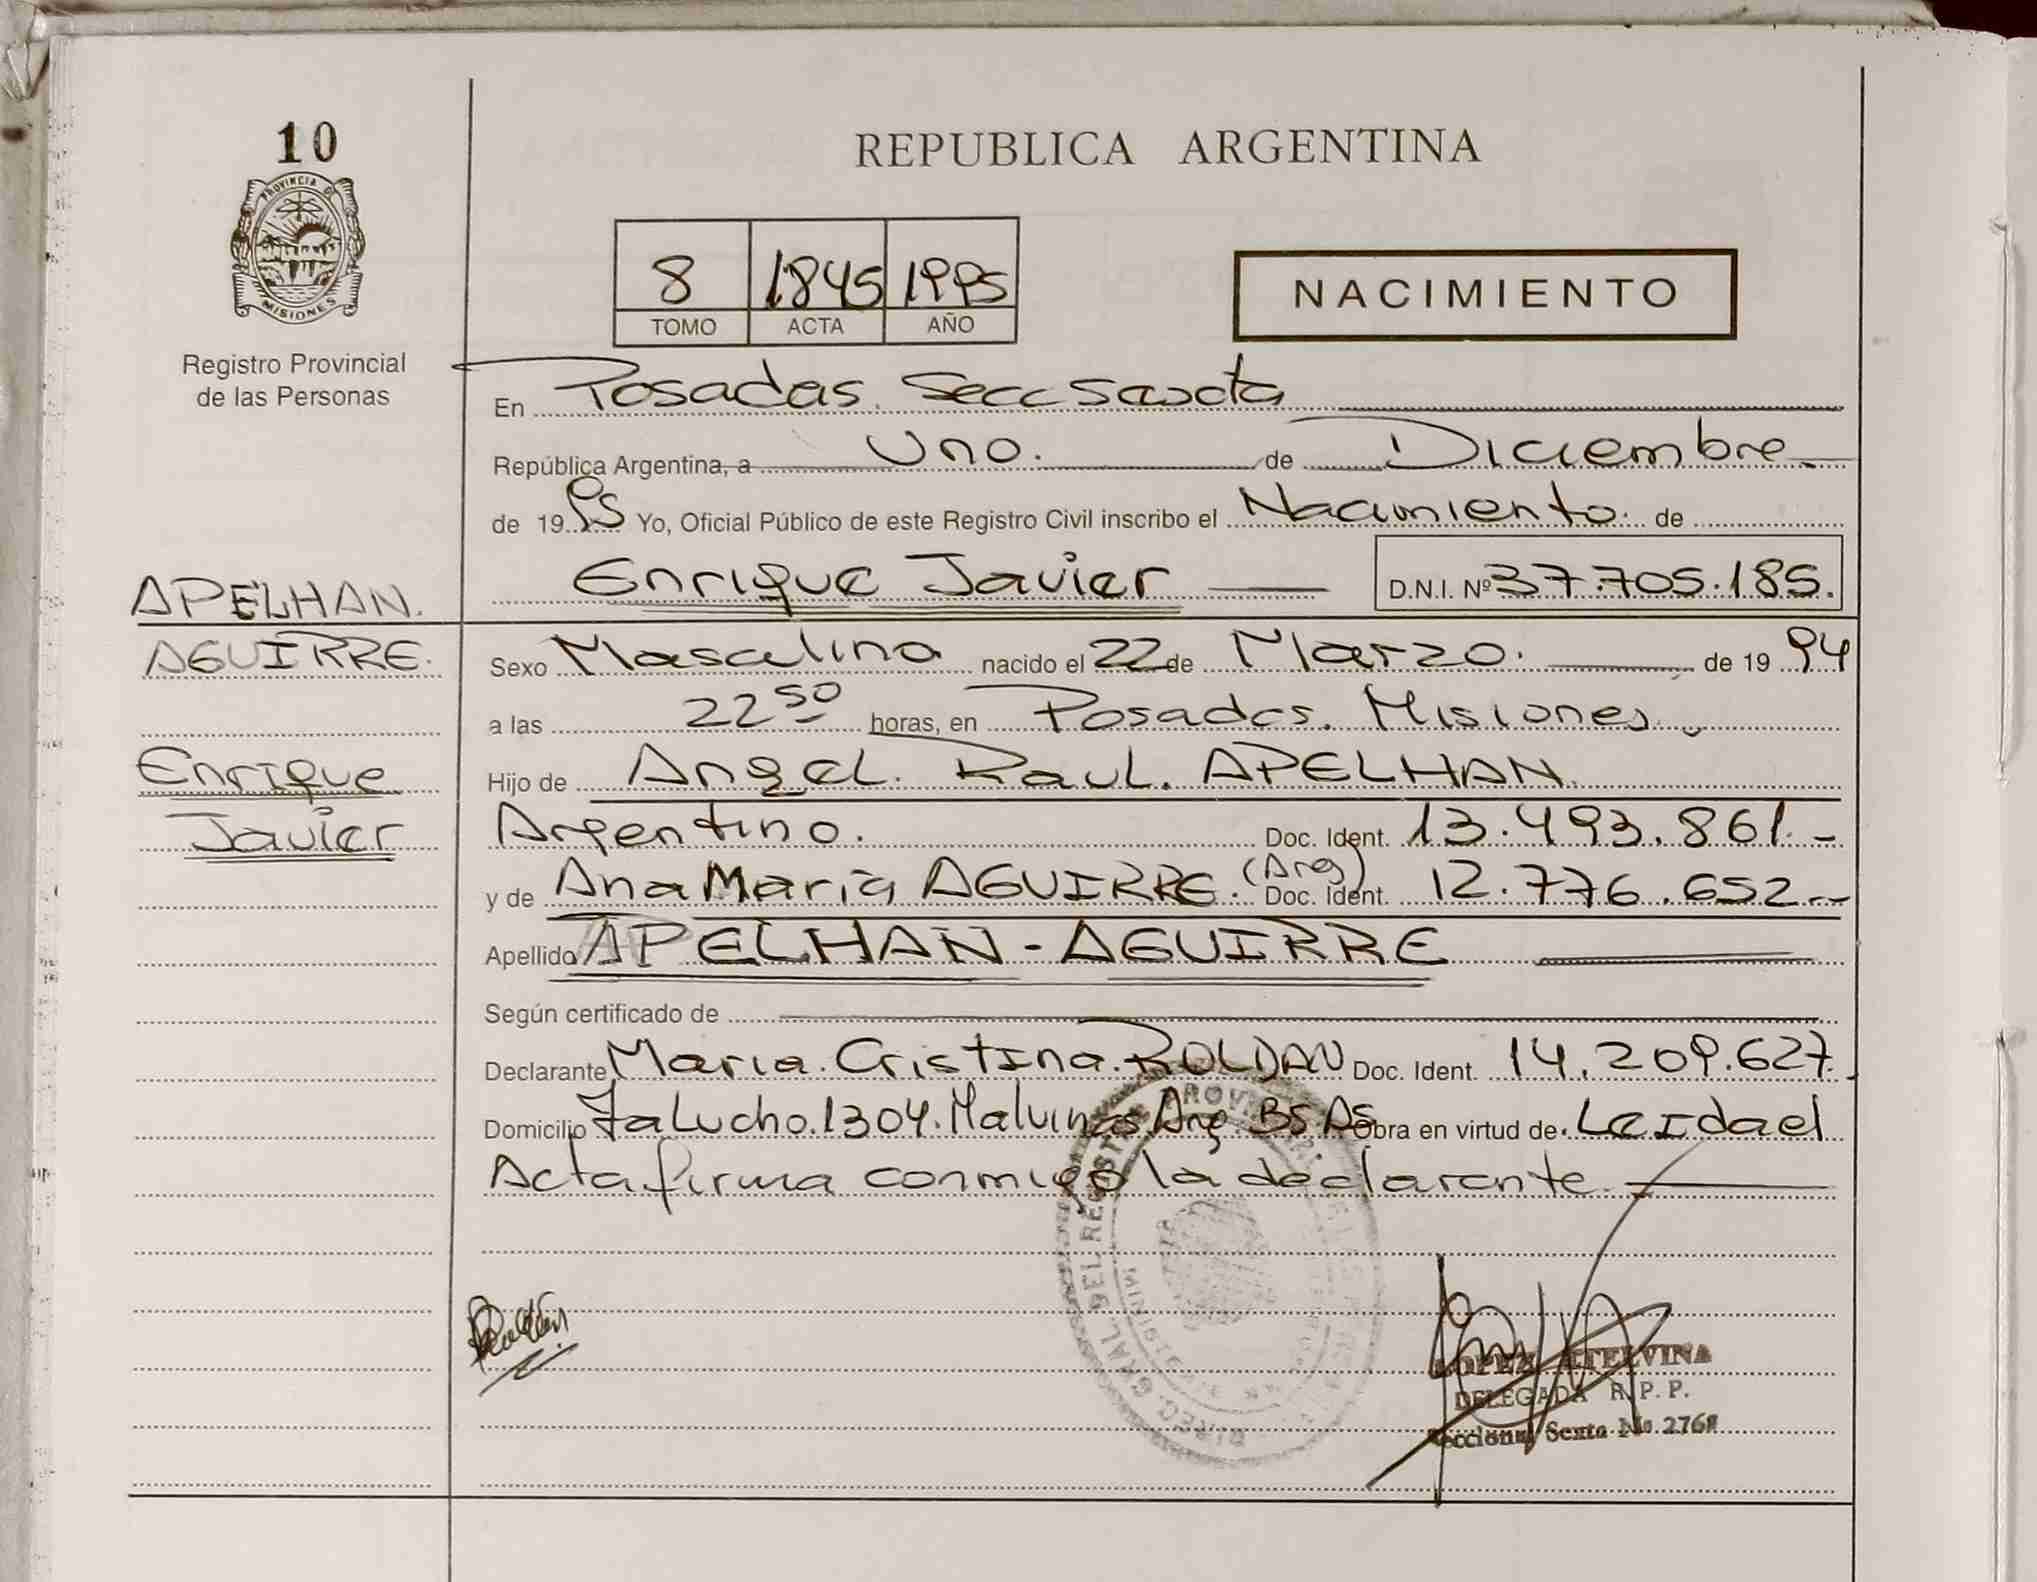 10
PROVINCIA DE
MISIONES
Registro Provincial
de las Personas
REPUBLICA ARGENTINA
8 1845 1995
TOMO ACTA AÑO
NACIMIENTO
En Posadas. Secc Sexta
República Argentina, a Uno. de Diciembre
de 1995 Yo, Oficial Público de este Registro Civil inscribo el Nacimiento. de
Enrique Javier D.N.I. Nº 37.705.185.
APELHAN.
AGUIRRE.
Enrique
Javier
Sexo Masculino nacido el 22 de Marzo. de 1994
a las 22 50 horas, en Posadas. Misiones
Hijo de Angel. Raul. APELHAN.
Argentino. Doc. Ident. 13.493.861.-
y de Ana Maria AGUIRRE. (Arg) Doc. Ident. 12.776.652.-
Apellido APELHAN - AGUIRRE
Según certificado de
Declarante Maria. Cristina. ROLDAN Doc. Ident. 14.209.627.
Domicilio Falucho. 1304. Malvinas Arg. Bs As Obra en virtud de. Leida el
Acta firma conmigo la declarante.
Roldán
DIREC. GRAL. DEL REGISTRO PROVINCIAL DE LAS
LOPEZ ETELVINA
DELEGADA R. P. P.
Seccional Sexta No. 276